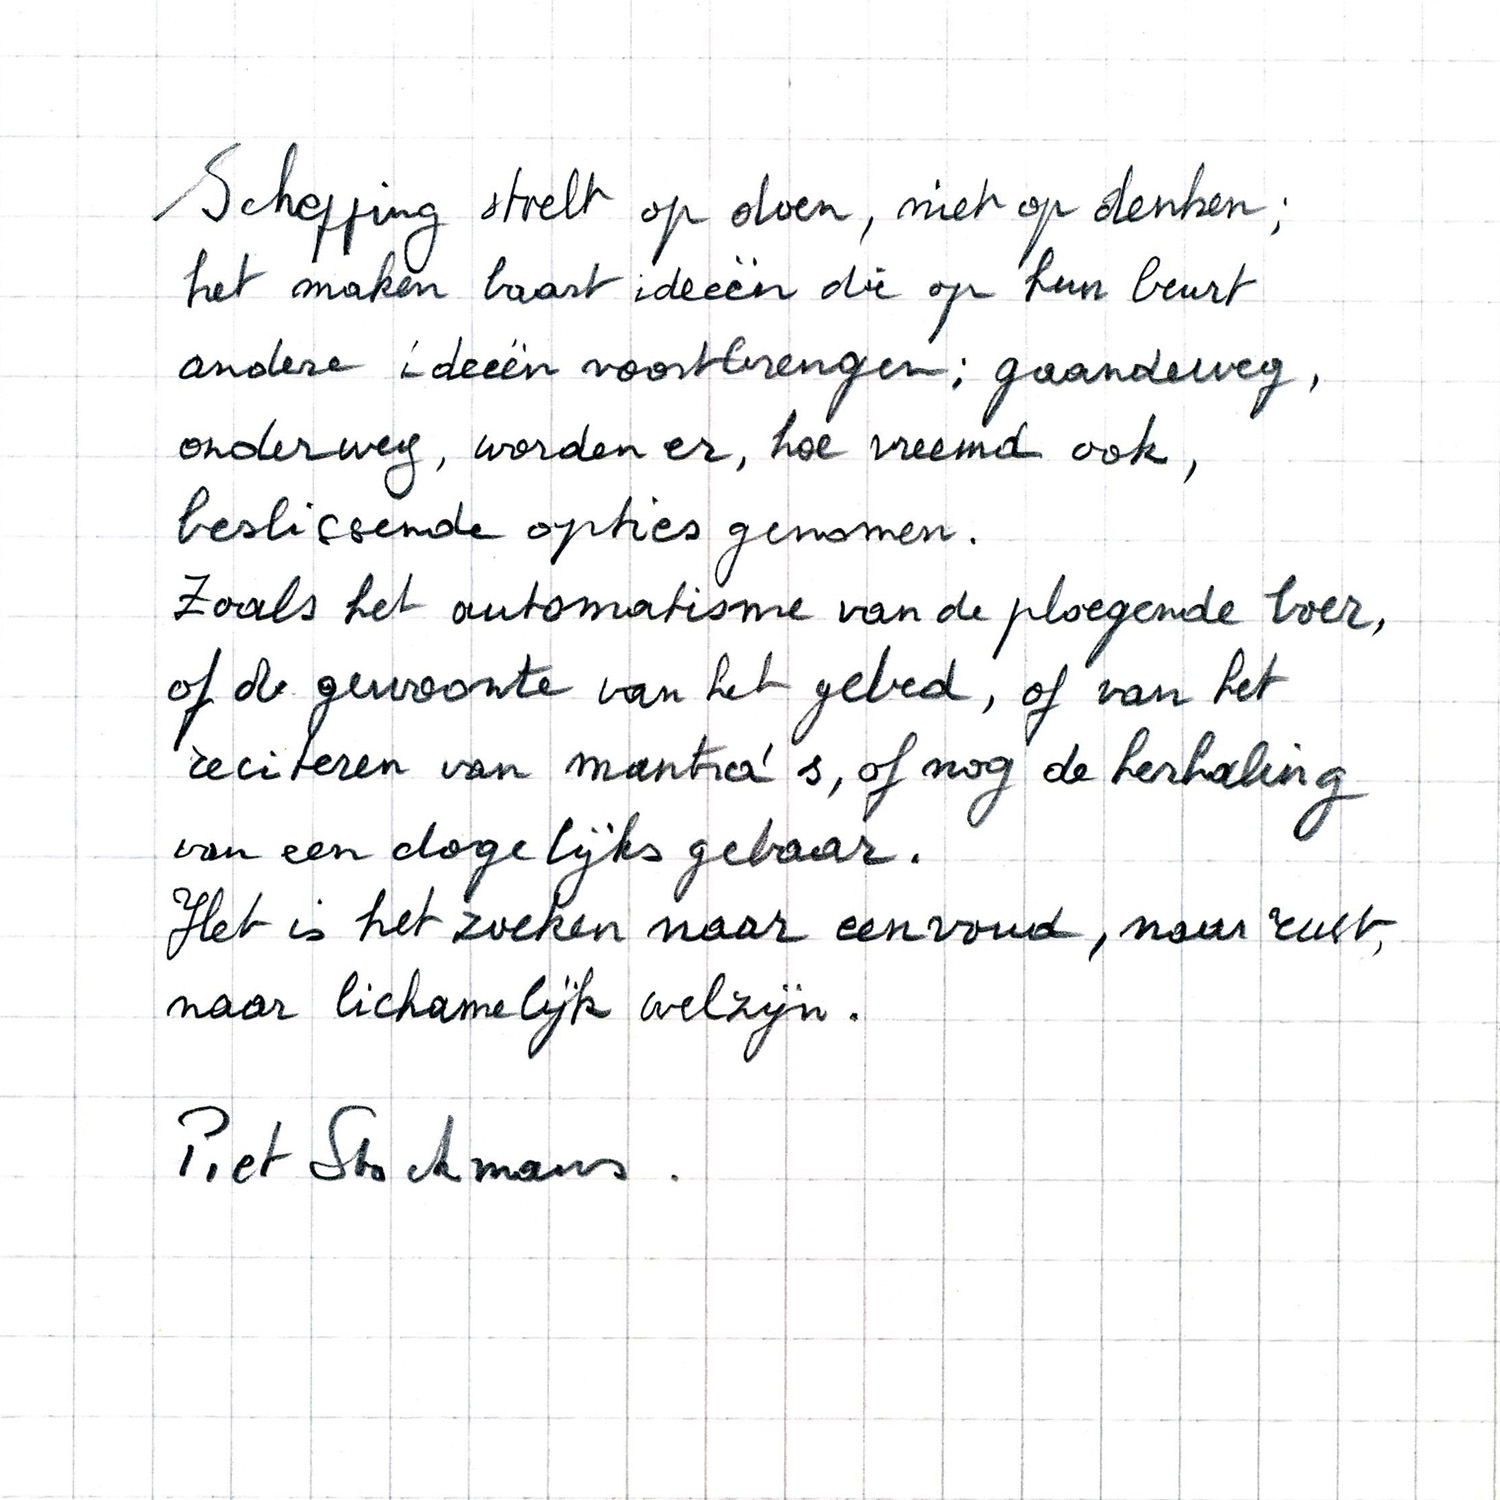 Schepping stoelt op doen, niet op denken;
het maken baart ideeën die op hun beurt
andere ideeën voortbrengen; gaandeweg,
onderweg, worden er, hoe vreemd ook,
beslissende opties genomen.
Zoals het automatisme van de ploegende boer,
of de gewoonte van het gebed, of van het
reciteren van mantra's, of nog de herhaling
van een dagelijks gebaar.
Het is het zoeken naar eenvoud, naar rust,
naar lichamelijk welzijn.
Piet Stockmans.